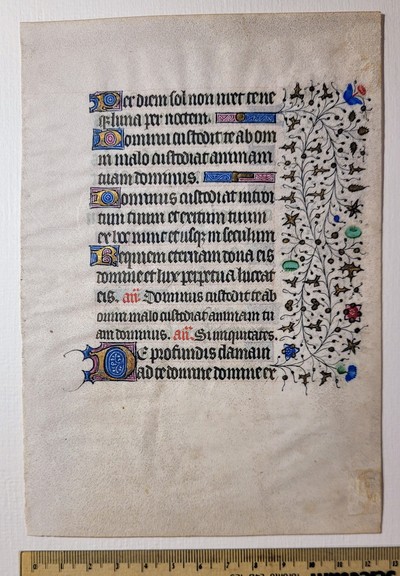 Per diem sol non uret te ne
q̃ luna per noctem.
Dominus custodit te ab om
ni malo custodiat animam
tuam dominus.
Dominus custodiat introi
tum tuum et exitum tuum
ex hoc nunc et usq̃ in seculum
Requiem eternam dona eis
domine et lux perpetua luceat
eis. añ. Dominus custodit te ab
omni malo custodiat animam tu
am dominus. añ. Si iniquitates.
De profundis clamaui
ad te domine domine ex
0 1 2 3 4 5 6 7 8 9 10 11 12 13